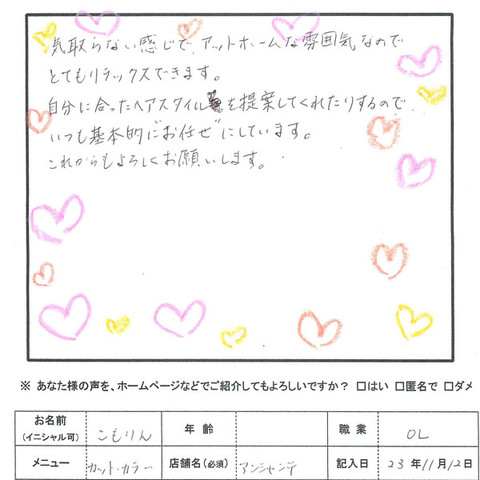 気取らない感じで、アットホームな雰囲気なので
とてもリラックスできます。
自分に合ったヘアスタイルを提案してくれたりするので
いつも基本的に"お任せ"にしています。
これからもよろしくお願いします。
※ あなた様の声を、ホームページなどでご紹介してもよろしいですか？ □はい □匿名で □ダメ
お名前 (イニシャル可) こもりん 年齢 職業 OL
メニュー カット・カラー 店舗名(必須) アンシャンテ 記入日 23年11月12日